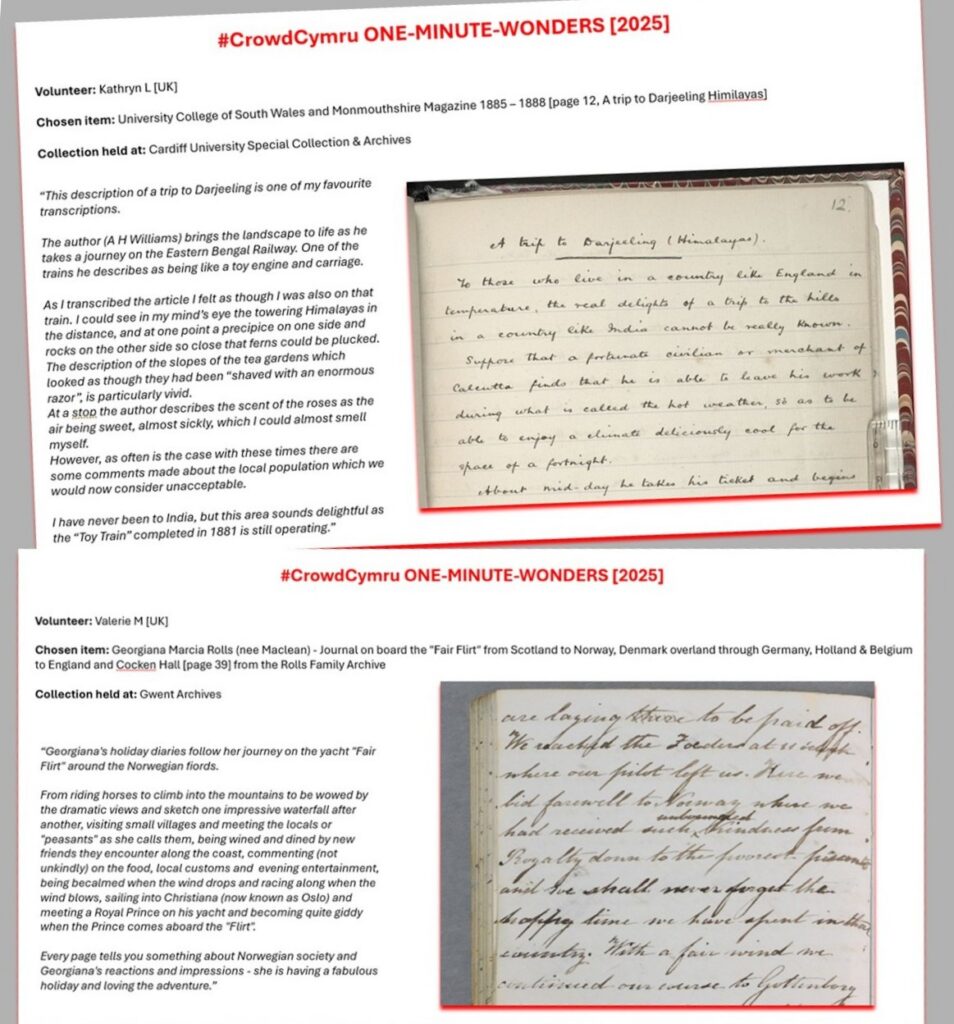 #CrowdCymru ONE-MINUTE-WONDERS [2025]
Volunteer: Kathryn L [UK]
Chosen item: University College of South Wales and Monmouthshire Magazine 1885 – 1888 [page 12, A trip to Darjeeling Himilayas]
Collection held at: Cardiff University Special Collection & Archives
“This description of a trip to Darjeeling is one of my favourite
transcriptions.
The author (A H Williams) brings the landscape to life as he
takes a journey on the Eastern Bengal Railway. One of the
trains he describes as being like a toy engine and carriage.
As I transcribed the article I felt as though I was also on that
train. I could see in my mind’s eye the towering Himalayas in
the distance, and at one point a precipice on one side and
rocks on the other side so close that ferns could be plucked.
The description of the slopes of the tea gardens which
looked as though they had been “shaved with an enormous
razor”, is particularly vivid.
At a stop the author describes the scent of the roses as the
air being sweet, almost sickly, which I could almost smell
myself.
However, as often is the case with these times there are
some comments made about the local population which we
would now consider unacceptable.
I have never been to India, but this area sounds delightful as
the “Toy Train” completed in 1881 is still operating.”
12.
A trip to Darjeeling (Himalayas).
To those who live in a country like England in
temperature, the real delights of a trip to the hills
in a country like India cannot be really known.
Suppose that a fortunate civilian or merchant of
Calcutta finds that he is able to leave his work
during what is called the hot weather, so as to be
able to enjoy a climate deliciously cool for the
space of a fortnight.
About mid-day he takes his ticket and begins
#CrowdCymru ONE-MINUTE-WONDERS [2025]
Volunteer: Valerie M [UK]
Chosen item: Georgiana Marcia Rolls (nee Maclean) - Journal on board the "Fair Flirt" from Scotland to Norway, Denmark overland through Germany, Holland & Belgium
to England and Cocken Hall [page 39] from the Rolls Family Archive
Collection held at: Gwent Archives
“Georgiana’s holiday diaries follow her journey on the yacht “Fair
Flirt” around the Norwegian fiords.
From riding horses to climb into the mountains to be wowed by
the dramatic views and sketch one impressive waterfall after
another, visiting small villages and meeting the locals or
"peasants" as she calls them, being wined and dined by new
friends they encounter along the coast, commenting (not
unkindly) on the food, local customs and evening entertainment,
being becalmed when the wind drops and racing along when the
wind blows, sailing into Christiana (now known as Oslo) and
meeting a Royal Prince on his yacht and becoming quite giddy
when the Prince comes aboard the "Flirt".
Every page tells you something about Norwegian society and
Georgiana's reactions and impressions - she is having a fabulous
holiday and loving the adventure.”
are laying there to be paid off.
We reached the Foeder at 11
where our pilot left us. Here we
bid farewell to Norway where we
unbounded
had received such kindness from
Royalty down to the poorest
and we shall never forget the
happy time we have spent in that
country. With a fair wind we
continued our course to Gottenborg